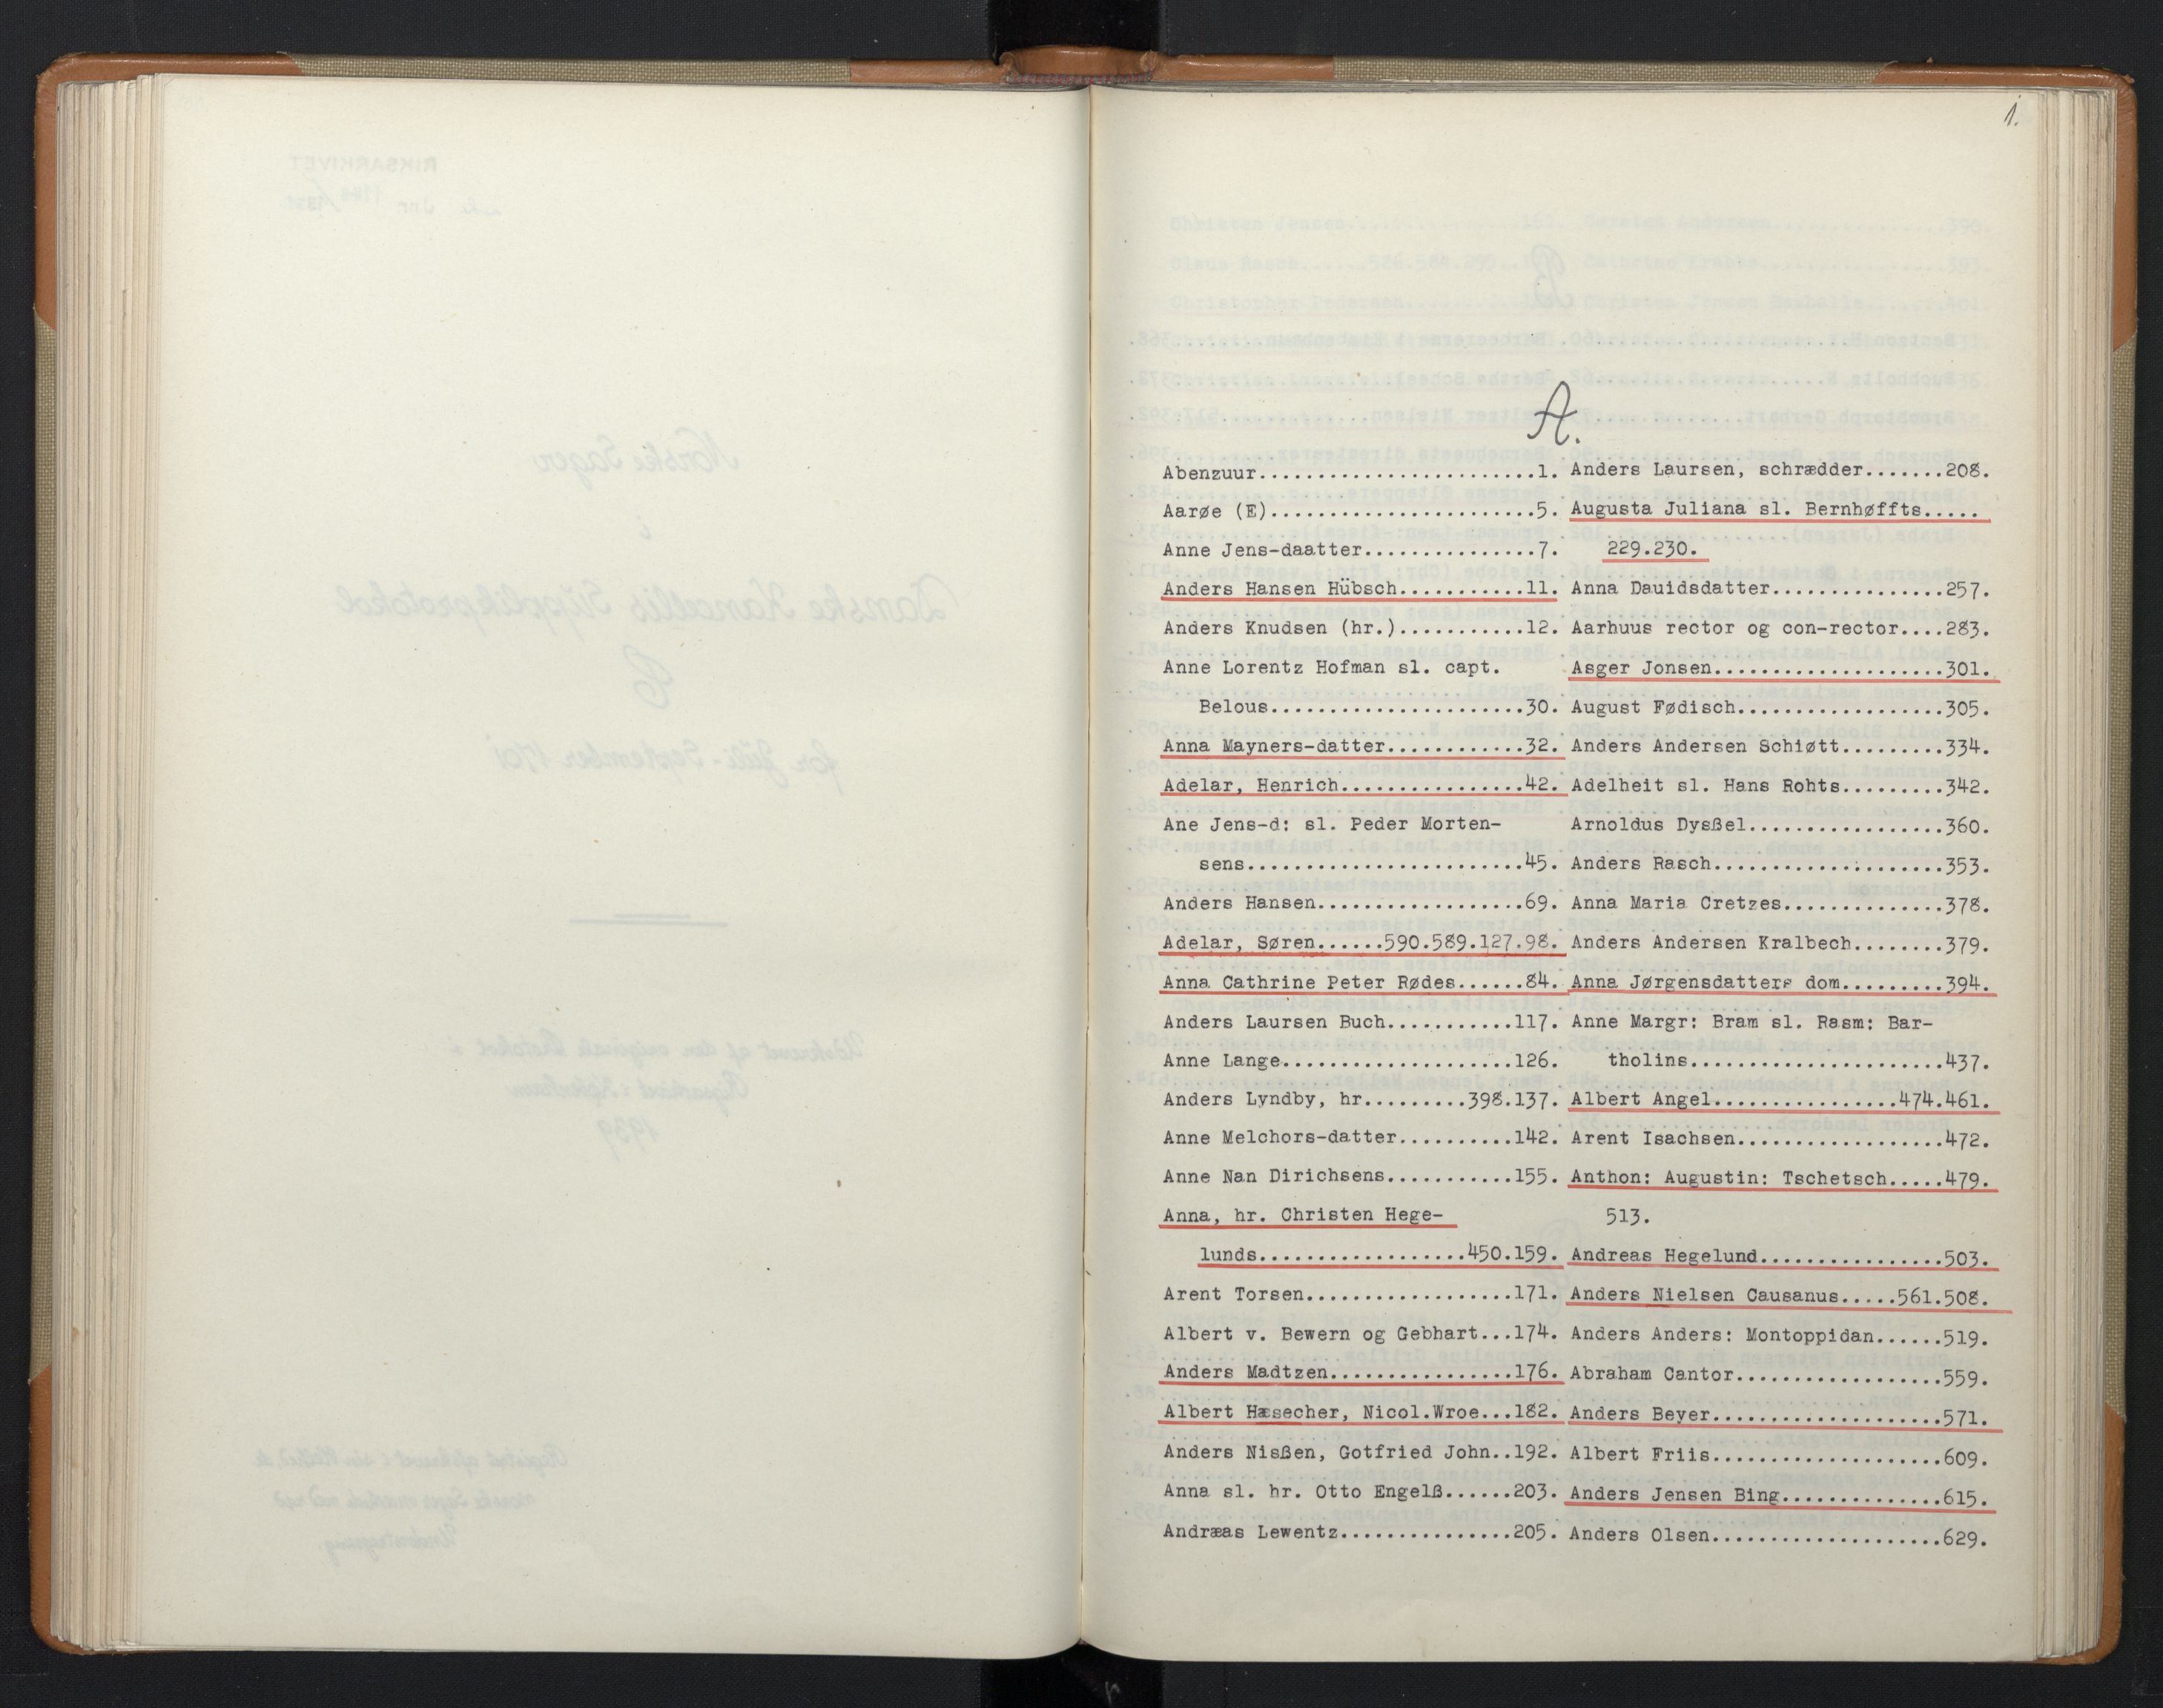 1.
A.
Abenzuur........................1.
Aarøe (E).......................5.
Anne Jens-daatter...............7.
Anders Hansen Hübsch...........11.
Anders Knudsen (hr.)...........12.
Anne Lorentz Hofman sl. capt.
Belous......................30.
Anna Mayners-datter............32.
Adelar, Henrich................42.
Ane Jens-d: sl. Peder Morten-
sens........................45.
Anders Hansen..................69.
Adelar, Søren......590.589.127.98.
Anna Cathrine Peter Rødes......84.
Anders Laursen Buch...........117.
Anne Lange....................126.
Anders Lyndby, hr.........398.137.
Anne Melchors-datter..........142.
Anne Nan Dirichsens...........155.
Anna, hr. Christen Hege-
lunds..................450.159.
Arent Torsen..................171.
Albert v. Bewern og Gebhart...174.
Anders Madtzen................176.
Albert Hæsecher, Nicol.Wroe...182.
Anders Nisßen, Gotfried John..192.
Anna sl. hr. Otto Engelß......203.
Andræas Lewentz...............205.
Anders Laursen, schrædder.......208.
Augusta Juliana sl. Bernhøffts.....
229.230.
Anna Dauidsdatter...............257.
Aarhuus rector og con-rector....283.
Asger Jonsen....................301.
August Fødisch..................305.
Anders Andersen Schiøtt.........334.
Adelheit sl. Hans Rohts.........342.
Arnoldus Dysßel.................360.
Anders Rasch....................353.
Anna Maria Cretzes..............378.
Anders Andersen Kralbech........379.
Anna Jørgensdatters dom.........394.
Anne Margr: Bram sl. Rasm: Bar-
tholins......................437.
Albert Angel................474.461.
Arent Isachsen..................472.
Anthon: Augustin: Tschetsch.....479.
513.
Andreas Hegelund................503.
Anders Nielsen Causanus.....561.508.
Anders Anders: Montoppidan......519.
Abraham Cantor..................559.
Anders Beyer....................571.
Albert Friis....................609.
Anders Jensen Bing..............615.
Anders Olsen....................629.